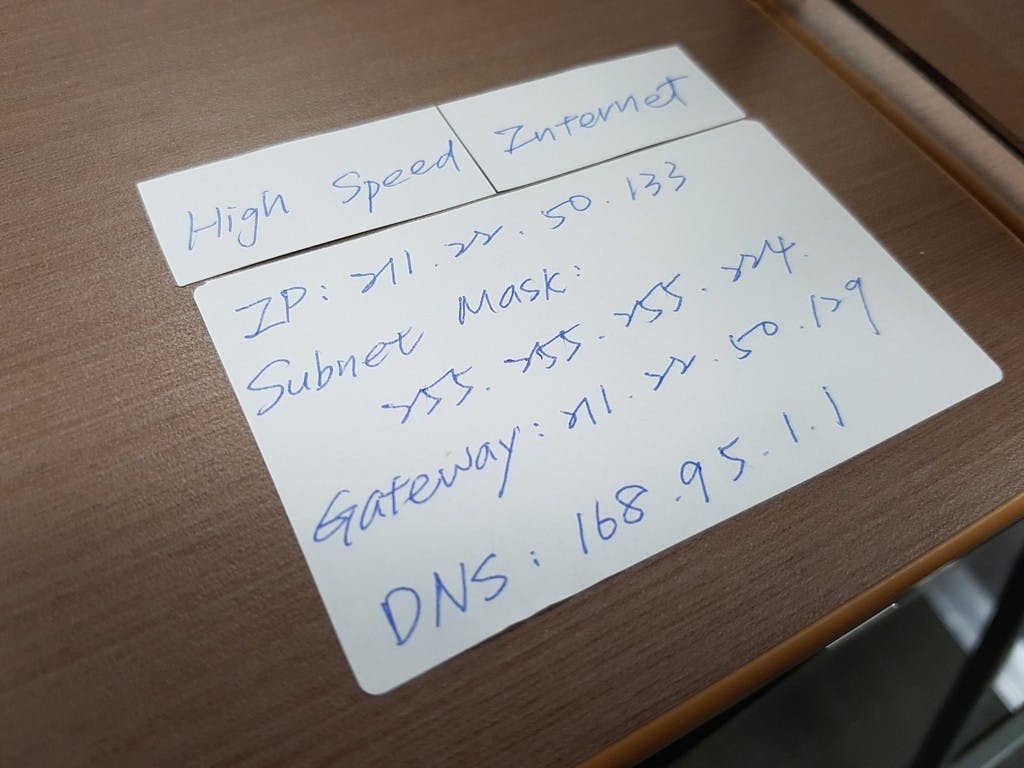 High Speed Internet
IP: 211.22.50.133
Subnet Mask:
255.255.255.224.
Gateway: 211.22.50.129
DNS: 168.95.1.1